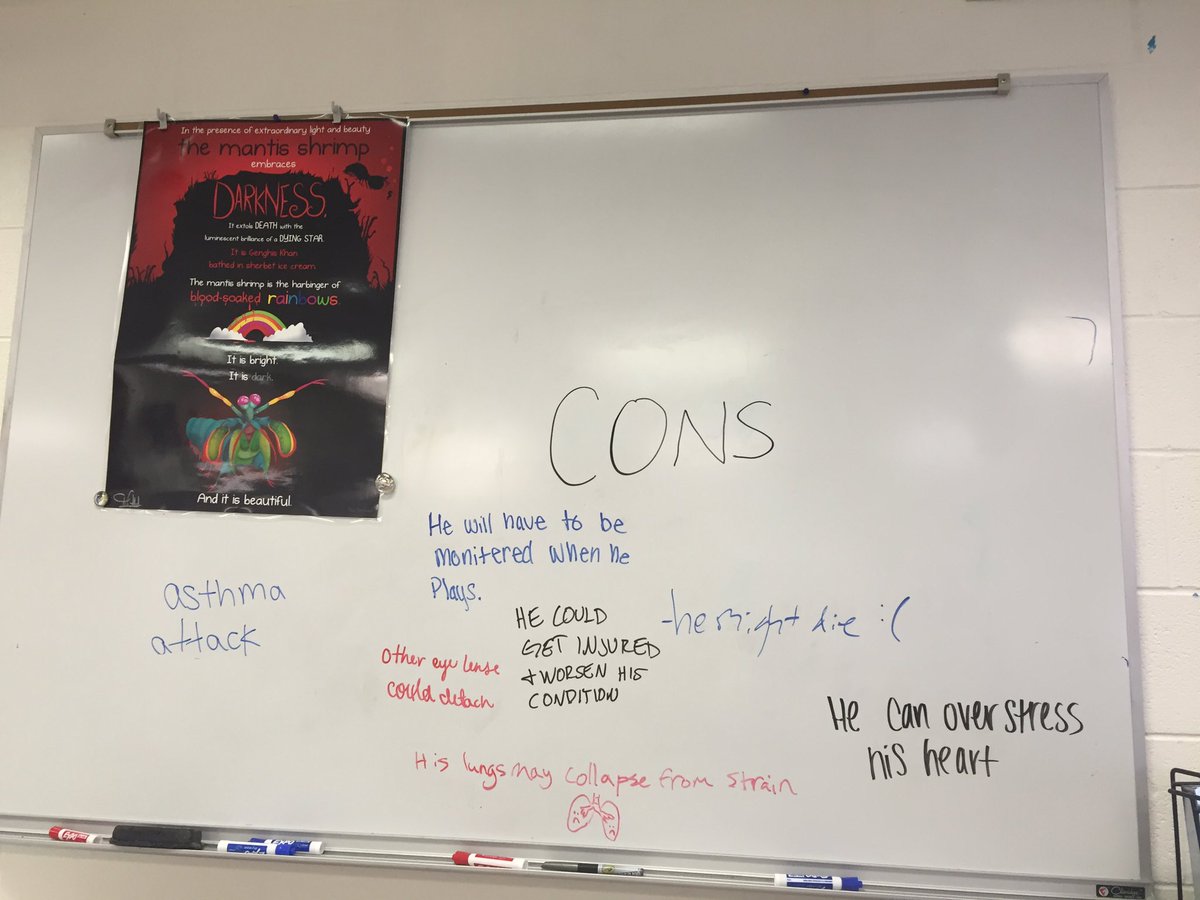 In the presence of extraordinary light and beauty
the mantis shrimp
embraces
DARKNESS.
It extols DEATH with the
luminescent brilliance of a DYING STAR.
It is Genghis Khan
bathed in sherbet ice cream.
The mantis shrimp is the harbinger of
blood-soaked rainbows.
It is bright.
It is dark.
And it is beautiful.
CONS
He will have to be
monitered when he
Plays.
asthma
attack
HE COULD
GET INJURED
+ WORSEN HIS
CONDITION
-he might die :(
Other eye lense
could detach
He can overstress
his heart
His lungs may collapse from strain
EXPO